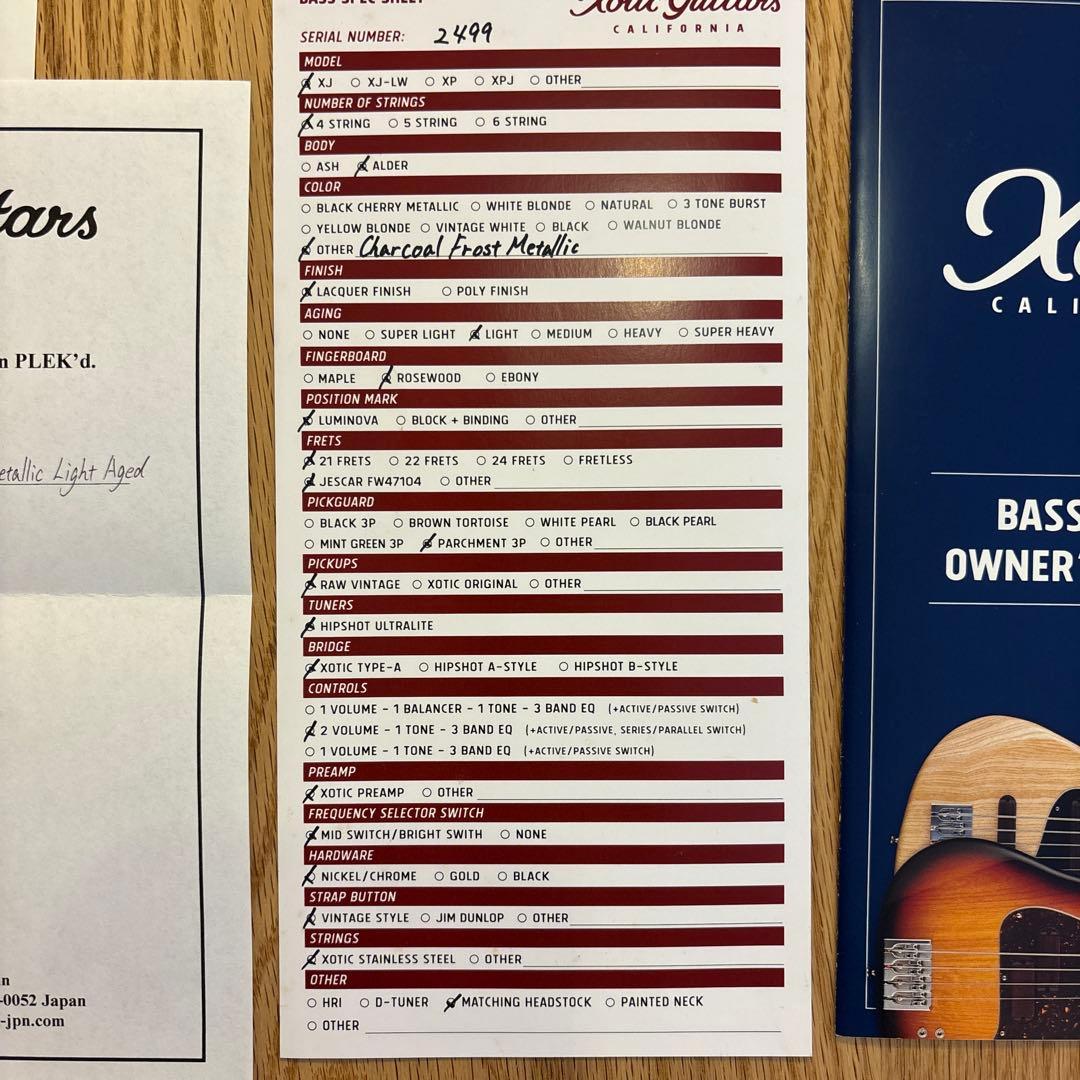 tars
n PLEK'd.
etallic Light Aged
n
-0052 Japan
-jpn.com
BASS SPEC SHEET
Xotic Guitars
CALIFORNIA
SERIAL NUMBER: 2499
MODEL
XJ ○ XJ-LW ○ XP ○ XPJ ○ OTHER
NUMBER OF STRINGS
4 STRING ○ 5 STRING ○ 6 STRING
BODY
○ ASH ALDER
COLOR
○ BLACK CHERRY METALLIC ○ WHITE BLONDE ○ NATURAL ○ 3 TONE BURST
○ YELLOW BLONDE ○ VINTAGE WHITE ○ BLACK ○ WALNUT BLONDE
OTHER Charcoal Frost Metallic
FINISH
LACQUER FINISH ○ POLY FINISH
AGING
○ NONE ○ SUPER LIGHT LIGHT ○ MEDIUM ○ HEAVY ○ SUPER HEAVY
FINGERBOARD
○ MAPLE ROSEWOOD ○ EBONY
POSITION MARK
LUMINOVA ○ BLOCK + BINDING ○ OTHER
FRETS
21 FRETS ○ 22 FRETS ○ 24 FRETS ○ FRETLESS
JESCAR FW47104 ○ OTHER
PICKGUARD
○ BLACK 3P ○ BROWN TORTOISE ○ WHITE PEARL ○ BLACK PEARL
○ MINT GREEN 3P PARCHMENT 3P ○ OTHER
PICKUPS
RAW VINTAGE ○ XOTIC ORIGINAL ○ OTHER
TUNERS
HIPSHOT ULTRALITE
BRIDGE
XOTIC TYPE-A ○ HIPSHOT A-STYLE ○ HIPSHOT B-STYLE
CONTROLS
○ 1 VOLUME - 1 BALANCER - 1 TONE - 3 BAND EQ (+ACTIVE/PASSIVE SWITCH)
2 VOLUME - 1 TONE - 3 BAND EQ (+ACTIVE/PASSIVE, SERIES/PARALLEL SWITCH)
○ 1 VOLUME - 1 TONE - 3 BAND EQ (+ACTIVE/PASSIVE SWITCH)
PREAMP
XOTIC PREAMP ○ OTHER
FREQUENCY SELECTOR SWITCH
MID SWITCH/BRIGHT SWITH ○ NONE
HARDWARE
NICKEL/CHROME ○ GOLD ○ BLACK
STRAP BUTTON
VINTAGE STYLE ○ JIM DUNLOP ○ OTHER
STRINGS
XOTIC STAINLESS STEEL ○ OTHER
OTHER
○ HRI ○ D-TUNER MATCHING HEADSTOCK ○ PAINTED NECK
○ OTHER
Xo
CALI
BASS
OWNER'